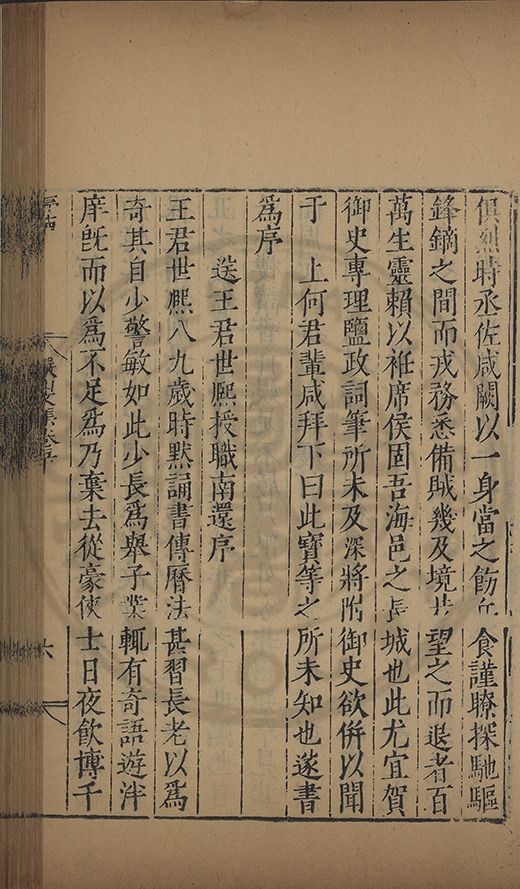 俱烈時丞佐咸闕以一身當之飭兵食謹瞭探馳驅
鋒鏑之間而戎務悉備賊幾及境者望之而退者百
萬生靈賴以袵席侯固吾海邑之長城也此尤宜賀
御史專理鹽政詞筆所未及深將附御史欲併以聞
于　上何君輩咸拜下曰此寶等之所未知也遂書
爲序
送王君世熈授職南還序
王君世熈八九歲時默誦書傳曆法甚習長老以爲
奇其自少警敏如此少長爲舉子業輒有奇語遊泮
庠旣而以爲不足爲乃棄去從豪俠士日夜飲博千
六